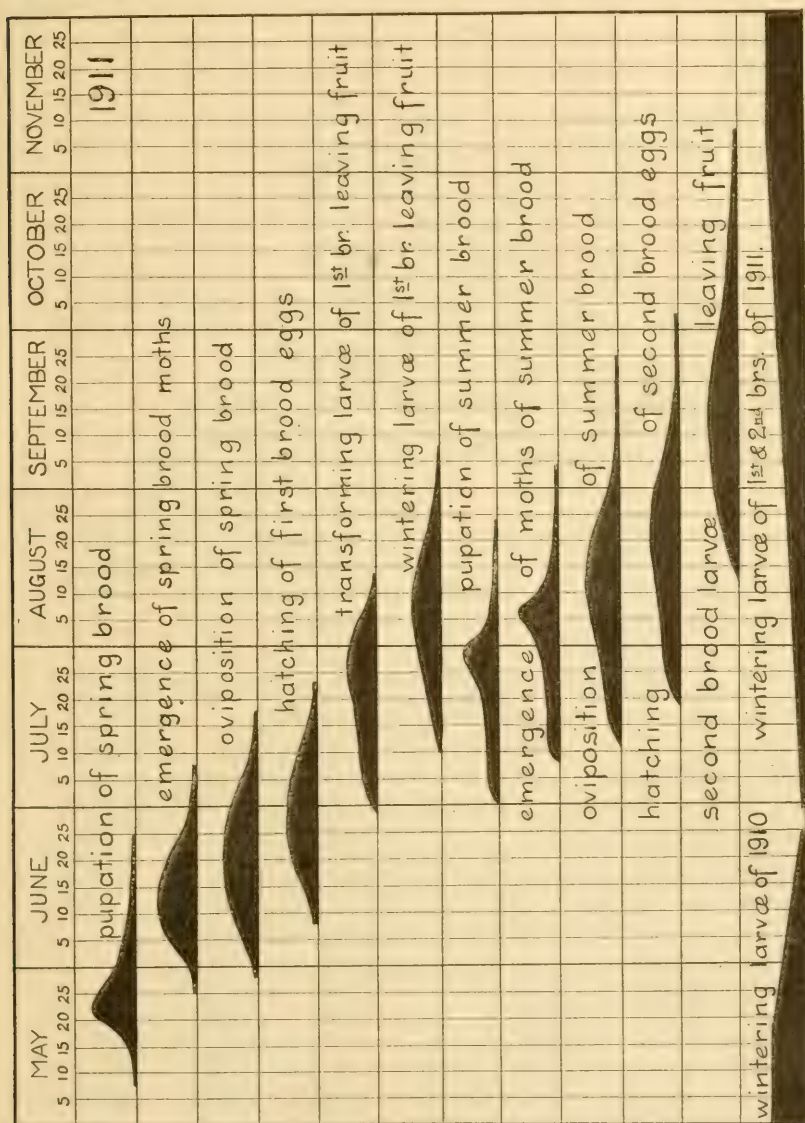 MAY JUNE JULY AUGUST SEPTEMBER OCTOBER NOVEMBER
5 10 15 20 25 5 10 15 20 25 5 10 15 20 25 5 10 15 20 25 5 10 15 20 25 5 10 15 20 25 5 10 15 20 25
pupation of spring brood 1911
emergence of spring brood moths
oviposition of spring brood
hatching of first brood eggs
transforming larvæ of 1st br. leaving fruit
wintering larvæ of 1st br. leaving fruit
pupation of summer brood
emergence of moths of summer brood
oviposition of summer brood
hatching of second brood eggs
second brood larvæ leaving fruit
wintering larvæ of 1910 wintering larvæ of 1st & 2nd brs. of 1911.